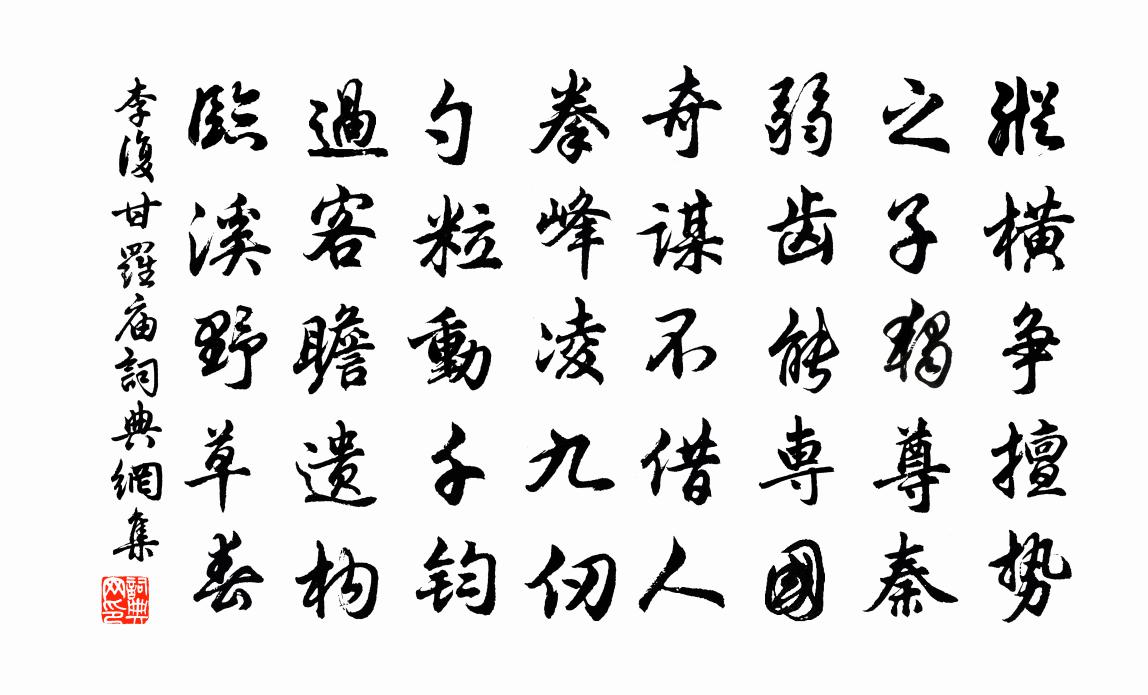 縱橫争擅勢
之子獨尊秦
弱齒能專國
奇謀不借人
拳峰凌九仞
勺粒動千鈞
過客瞻遺构
臨溪野草春
李復甘羅庙詞典網集
詞典网印